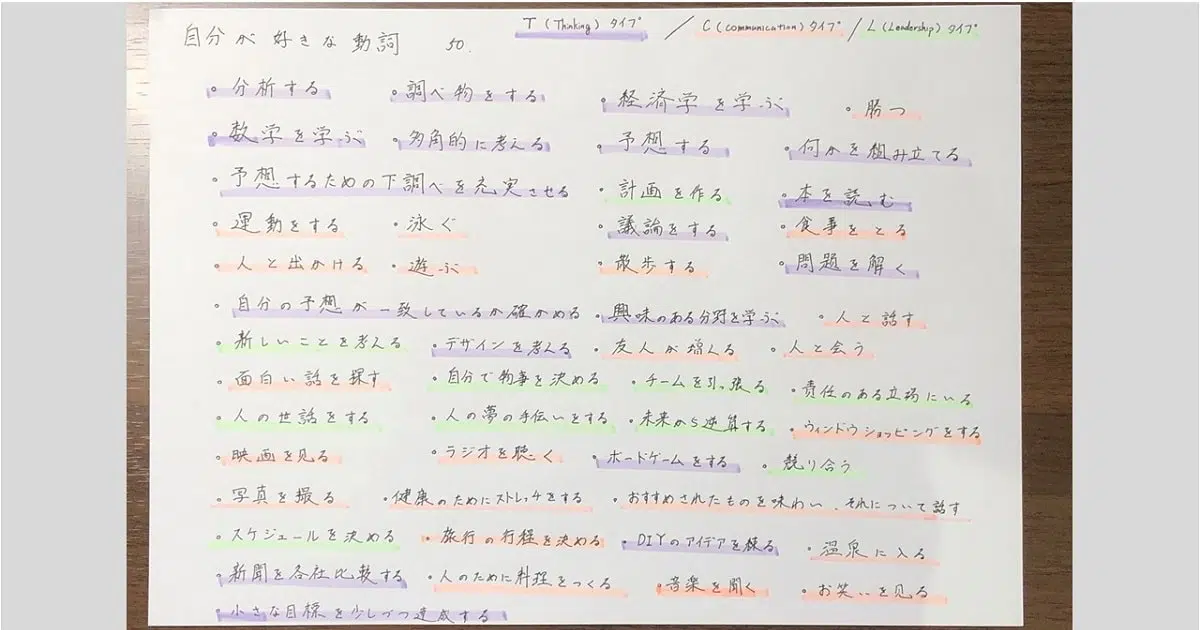 自分が好きな動詞 50. T (Thinking) タイプ / C (communication) タイプ / L (Leadership) タイプ
・分析する ・調べ物をする ・経済学を学ぶ ・勝つ
・数学を学ぶ ・多角的に考える ・予想する ・何かを組み立てる
・予想するための下調べを充実させる ・計画を作る ・本を読む
・運動をする ・泳ぐ ・議論をする ・食事をとる
・人と出かける ・遊ぶ ・散歩する ・問題を解く
・自分の予想が一致しているか確かめる ・興味のある分野を学ぶ ・人と話す
・新しいことを考える ・デザインを考える ・友人が増える ・人と会う
・面白い話を探す ・自分で物事を決める ・チームを引っ張る ・責任のある立場にいる
・人の世話をする ・人の夢の手伝いをする ・未来から逆算する ・ウィンドウショッピングをする
・映画を見る ・ラジオを聴く ・ボードゲームをする ・競り合う
・写真を撮る ・健康のためにストレッチをする ・おすすめされたものを味わい、それについて話す
・スケジュールを決める ・旅行の行程を決める ・DIYのアイデアを練る ・温泉に入る
・新聞を各社比較する ・人のために料理をつくる ・音楽を聞く ・お笑いを見る
・小さな目標を少しづつ達成する